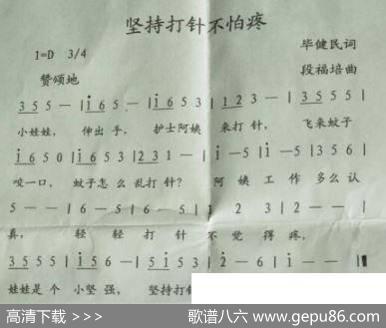 坚持打针不怕疼
1=D 3/4
毕健民词
赞颂地
段福培曲
3 5 5 — | i 6 5 — | i 6 5 3 | 1 2 3 — | 3 5 5 5 |
小娃娃， 伸出手， 护士阿姨 来打针， 飞来蚊子
i 6 5 0 | i 6 5 3 | 2 3 1 — | i — 5 | i — 5 | 3 5 6 |
咬一口， 蚊子怎么乱打针？ 阿姨工作多么认
5 — — | 6 — 5 | 6 — 5 | 1 2 3 | 2 — — |
真， 轻轻打针不觉得疼，
3 5 5 5 | i 5 6 — | 5 i 5 3 | 2 — 6 | i — — ‖
娃娃是个小坚强， 坚持打
高清下载 >>>
歌谱八六 www.gepu86.com